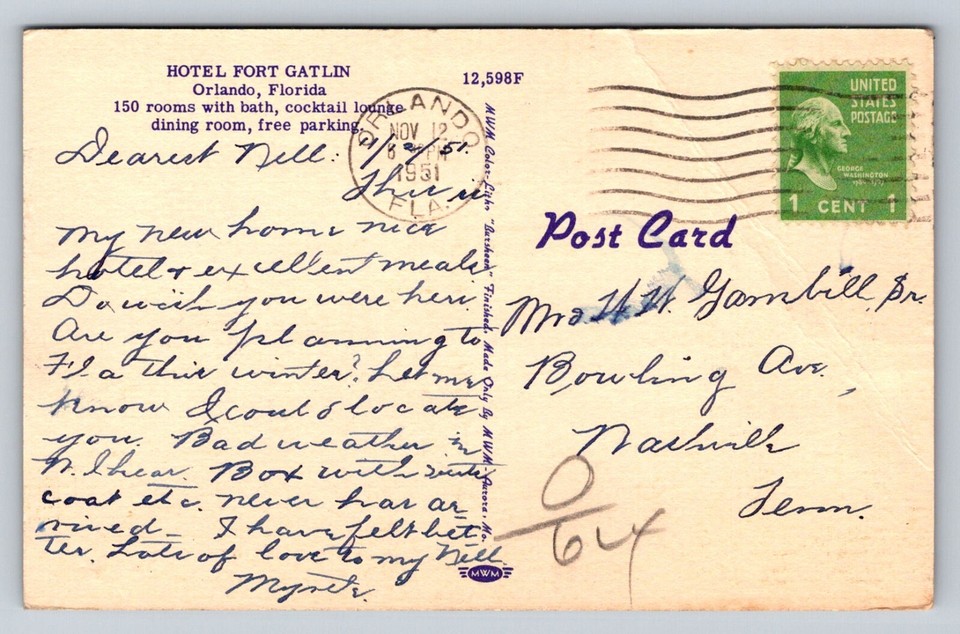 HOTEL FORT GATLIN
Orlando, Florida
150 rooms with bath, cocktail lounge
dining room, free parking.
12,598F
ORLANDO
NOV 12
6 PM
1951
FLA.
UNITED
STATES
POSTAGE
GEORGE
WASHINGTON
1 CENT 1
Dearest Nell: 1/12/51.
This is
my new home nice
hotel & excellent meals
Do wish you were here.
Are you planning to
Fla this winter? Let me
know I could locate
you. Bad weather in
N. I hear. Box with suits
coat etc. never has ar-
rived. I have felt bet-
ter. Lots of love to my Nell.
MWM Color-Litho "Darsheen" Finished. Made Only By MWM, Aurora, Mo.
MWM
Post Card
Mrs H. H. Gambill, Sr.
Bowling Ave.,
Nashville
Tenn.
0
64